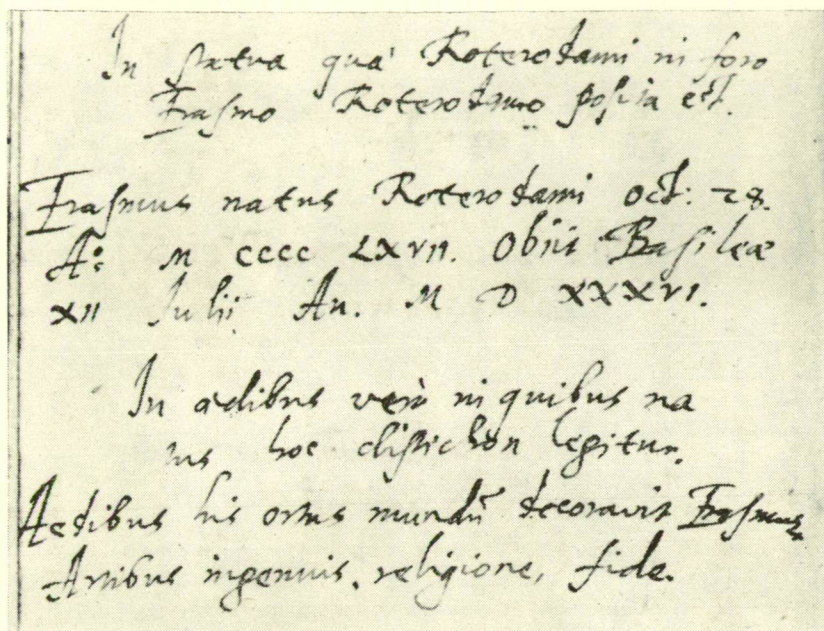 In statua quà Roterodami in foro
Erasmo Roterodamo posita est.
Erasmus natus Roterodami Oct: 28.
Aº M CCCC LXVII. Obiit Basileæ
XII Julii An. M D XXXVI.
In ædibus verò in quibus na
tus hoc distichon legitur.
Aedibus his ortus mundū decoravit Erasmus
Artibus ingenuis, religione, fide.